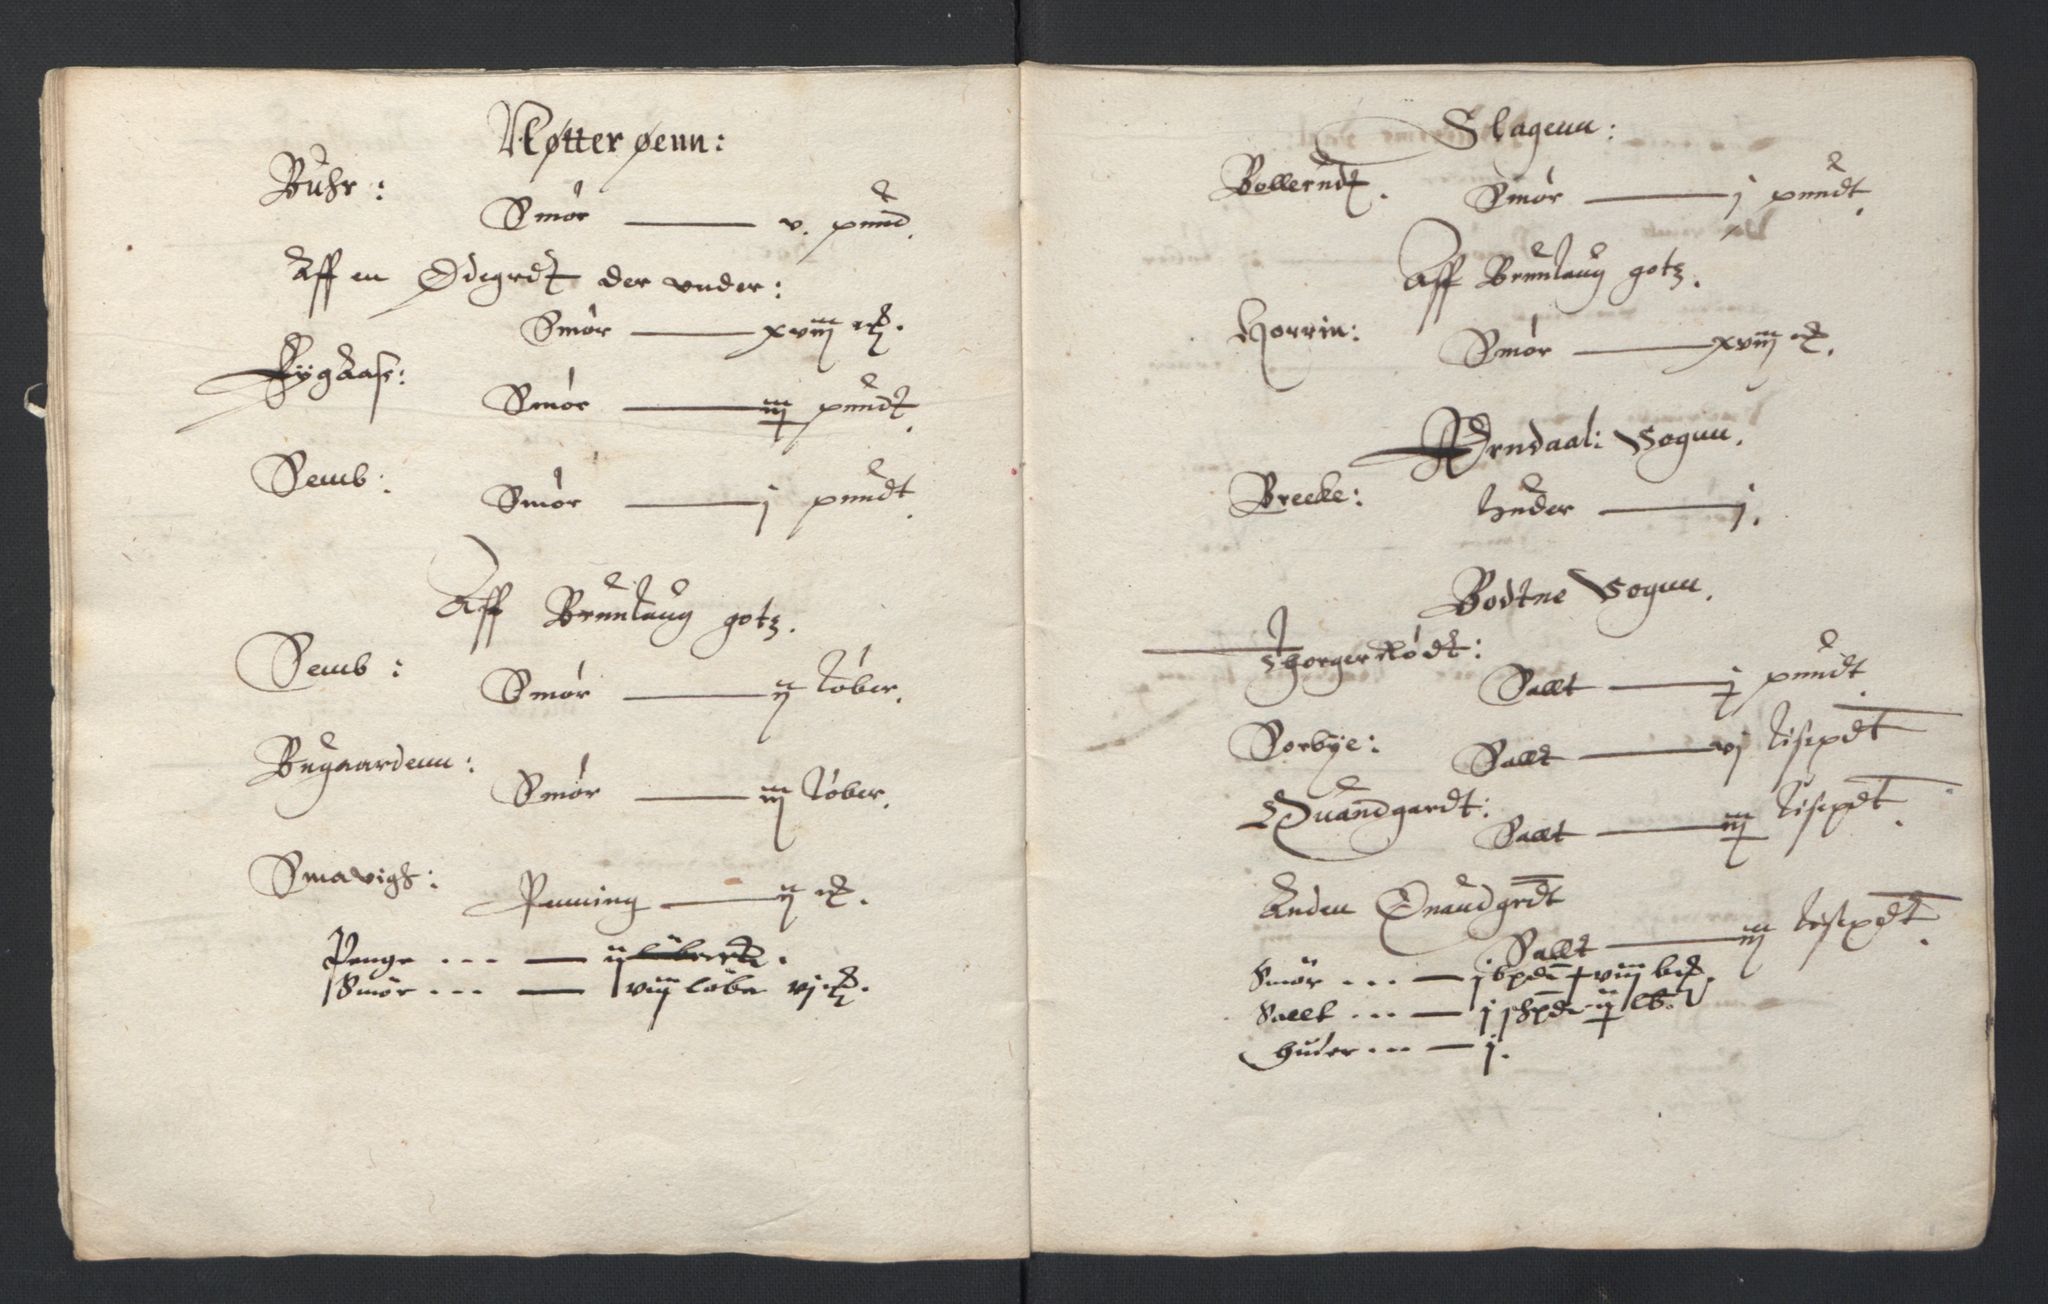 Nøtterøenn:
Buhr:
Smør — v. pund.
Aff en Ødegrdt der vnder:
Smør — xviij mk.
Rygaas:
Smør — iij pundt.
Semb:
Smør — j pundt.
Aff Brunlaug gotz.
Semb:
Smør — ij løber.
Bugaardenn:
Smør — iij løber.
Smavigh:
Penning — ij mk.
Penge --- — ij
Smør --- — viij løbe vj mk.
Slagenn:
Bollerudt.
Smør — j pundt.
Aff Brunlaug gotz.
Horrin:
Smør — xviij mk.
Arndaal: Sognn.
Brecke:
Huder — j.
Bodtne Sognn.
Thorgerrødt:
Sallt — j pundt.
Sorbye:
Sallt — vj lisepdt
Quandgardt:
Sallt — iij lisepdt.
Anden Quandgrdt
Sallt — iij lisepdt.
Smør --- — j bpd viij bmk.
Sallt --- — j shpd ij lb.
Huder --- — j.